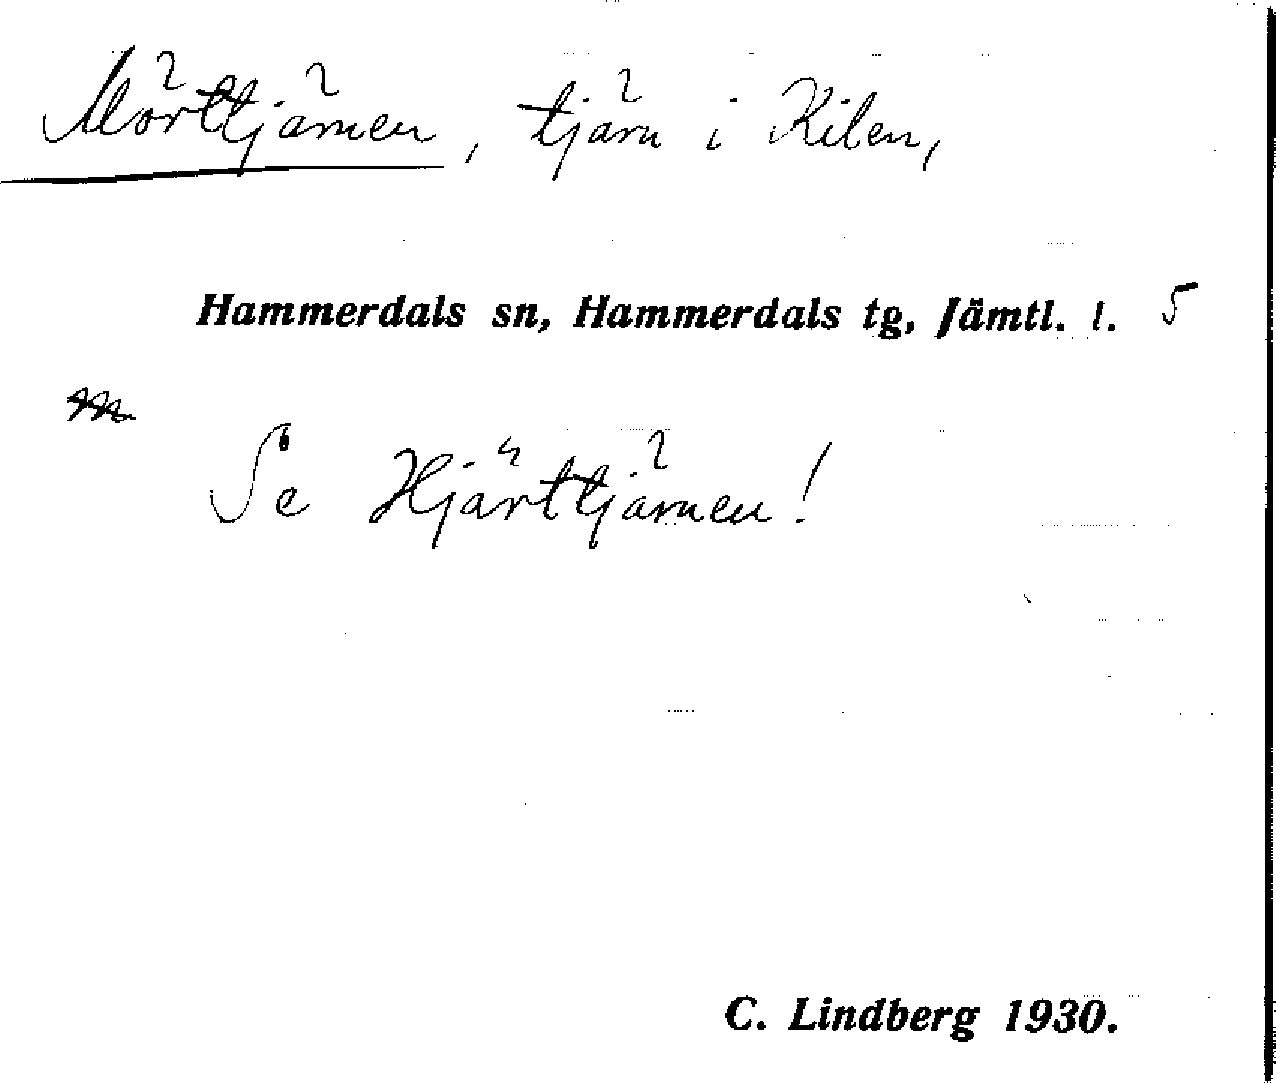 Mörttjärnen, tjärn i Kilen,
Hammerdals sn, Hammerdals tg, Jämtl. l. 5
Se Hjärttjärnen!
C. Lindberg 1930.